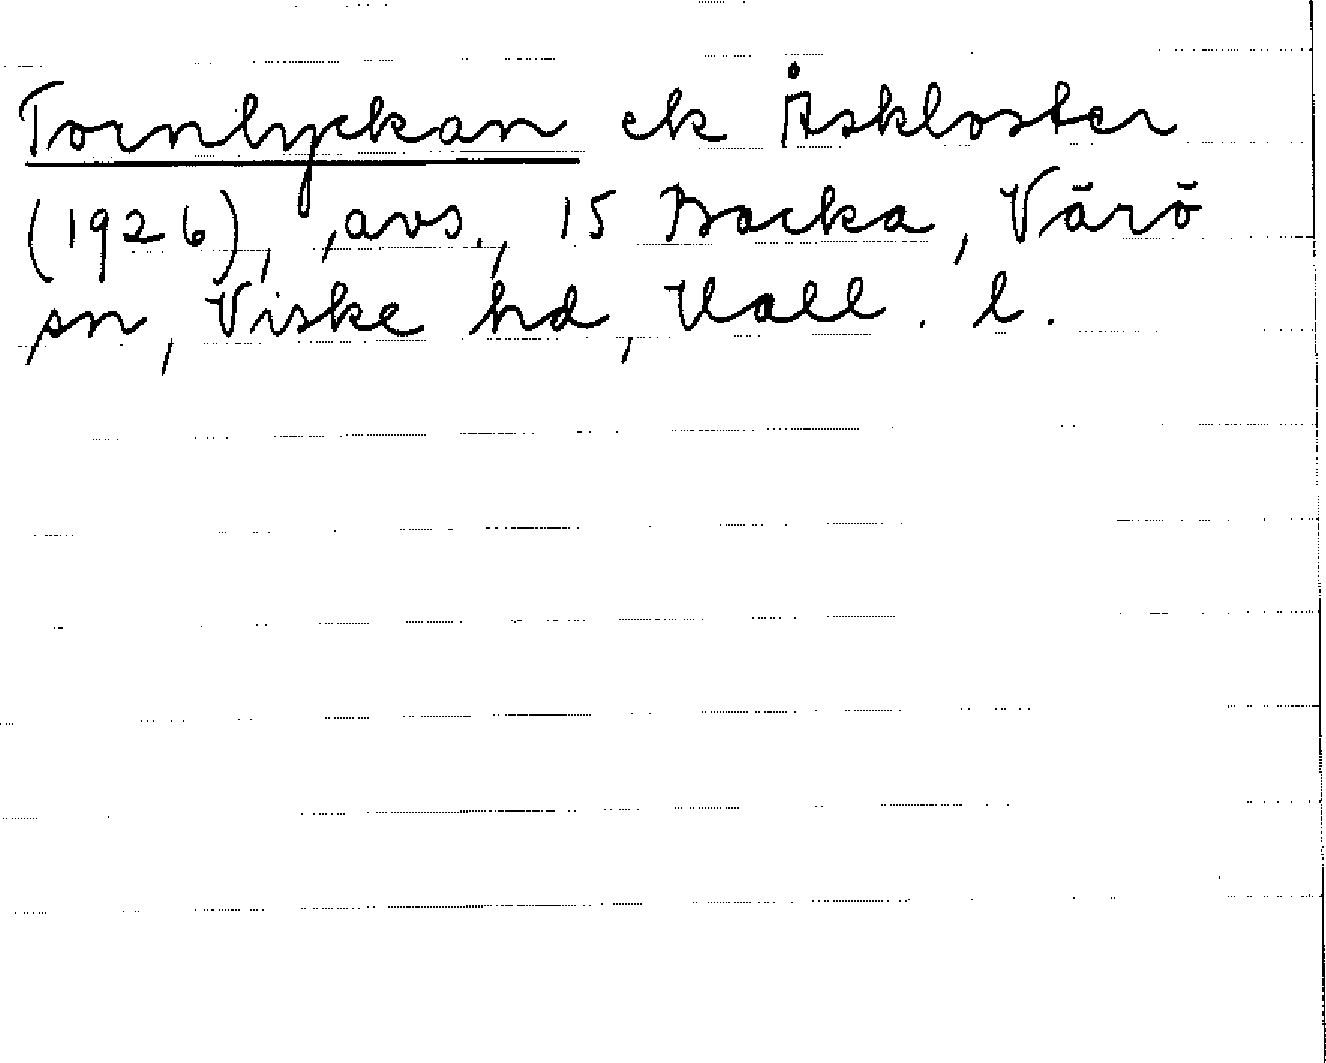 Tornlyckan ek Åskloster
(1926), , avs., 15 Backa, Värö
sn, Viske hd, Hall. l.